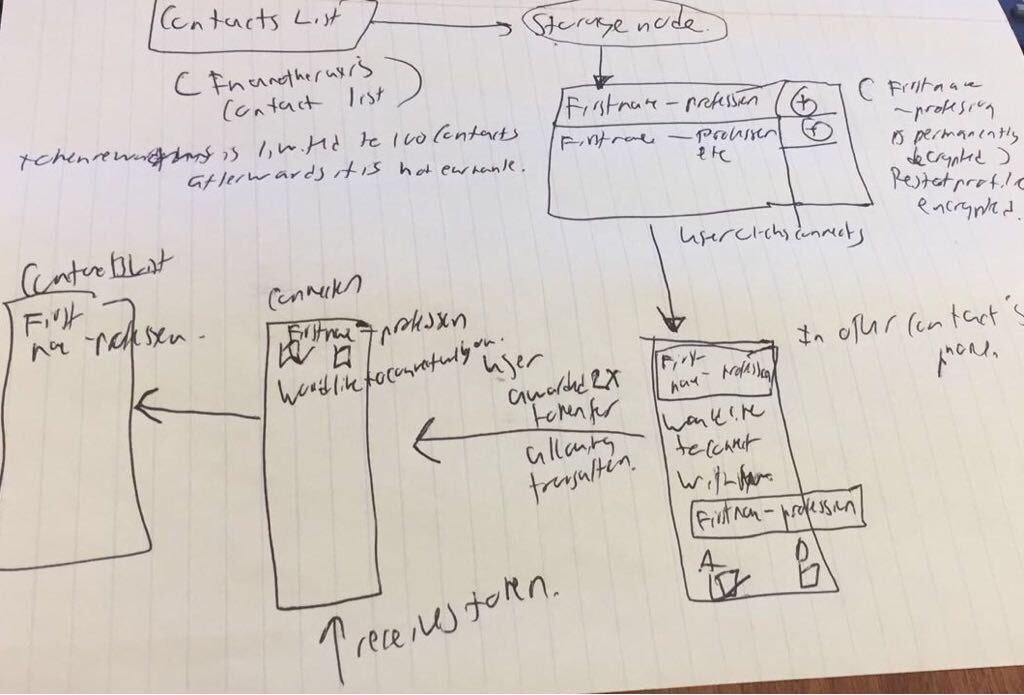 Contacts List
Storage node.
( In another user's
Contact list )
token rewardings is limited to 100 contacts
afterwards it is not earnable.
Firstname - profession (+)
Firstname - profession (+)
etc
( Firstname
- profession
is permanently
decrypted )
Rest of profile
encrypted.
User clicks connects
Contacts List
First
name - profession.
Connection
Firstname - profession
Would like to connect with you.
User
awarded 2X
token for
allowing
transaction.
In other contact's
phone.
First
name - profession
Would like
to connect
with
Firstname - profession
A D
receives token.